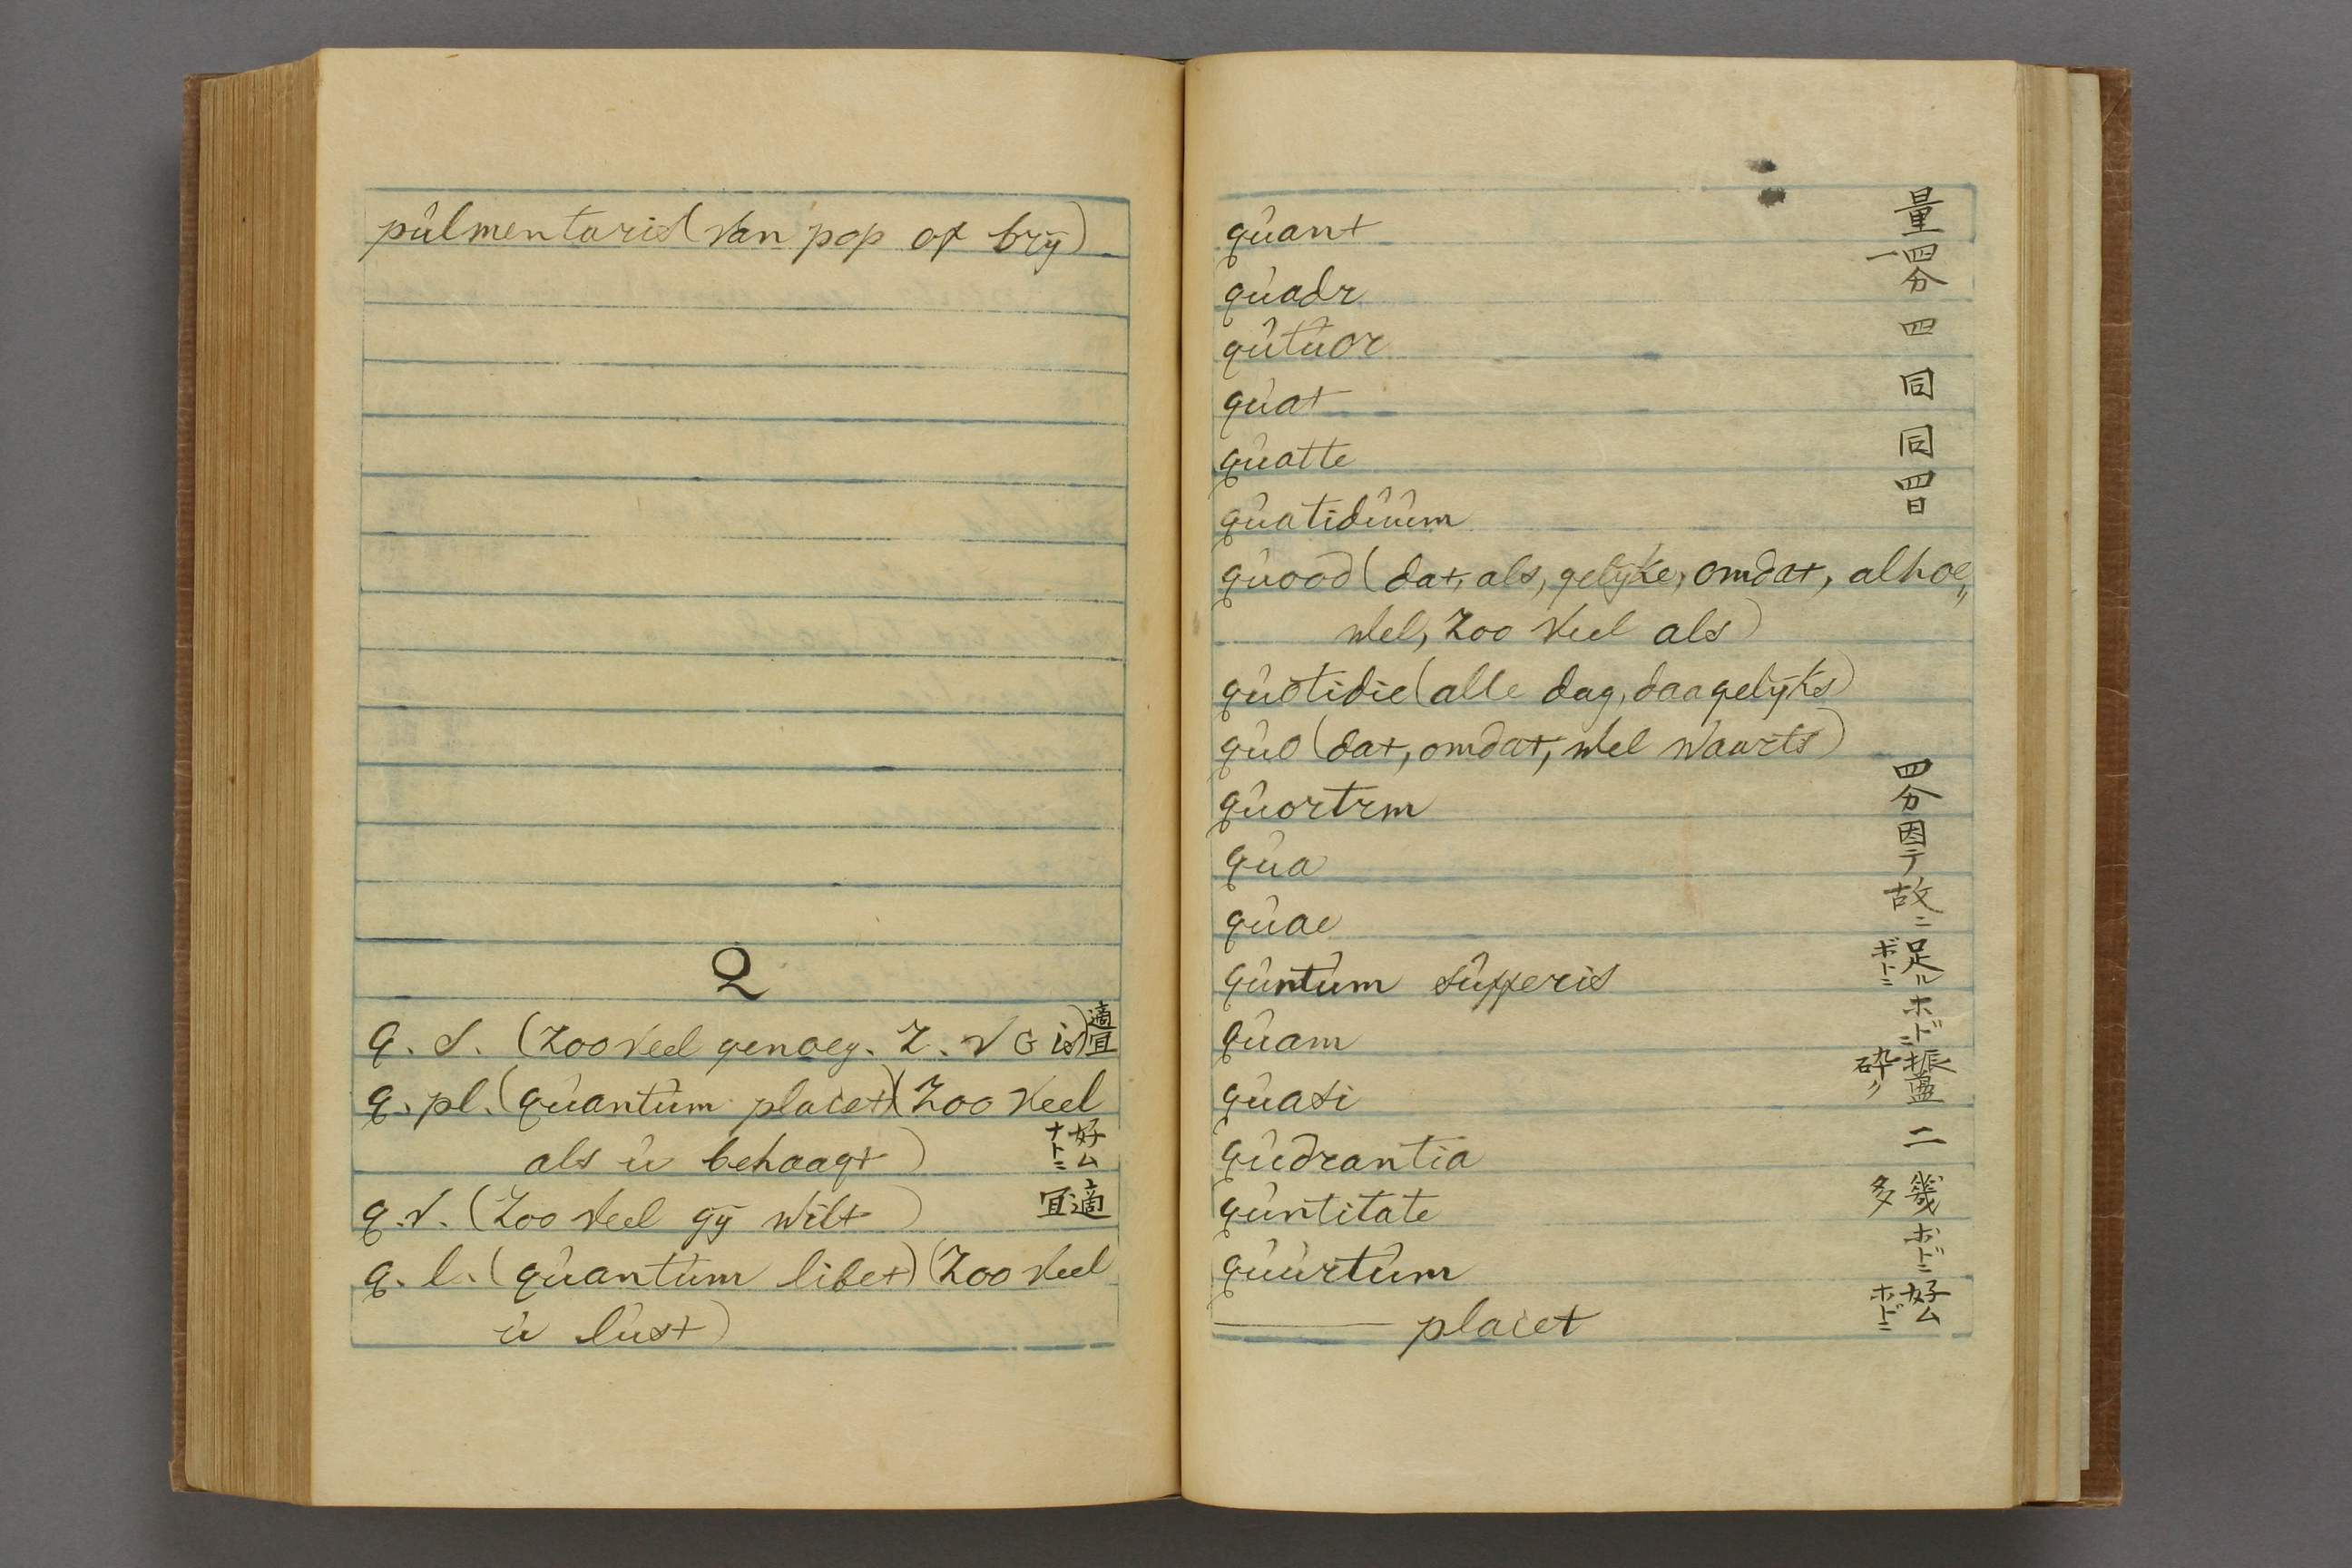 pûlmentaris (van pop of brÿ)
Q
q. s. (Zoo veel genoeg. Z. v G is) 適宜
q. pl. (qûantûm placet) (Zoo veel
als û behaagt) 好ムナトニ
q. v. (Zoo veel gÿ wilt) 適宜
q. l. (qûantûm libet) (Zoo veel
û lûst)
qûant 量
qûadr 四分一
qûtûor 四
qûat 同
qûatte 同
qûatidûûm 四日
qûood (dat, als, gelÿke, omdat, alhoe„
wel, Zoo veel als)
qûotidie (alle dag, daagelÿks)
qûo (dat, omdat, wel waarts)
qûortrm 四分
qûa 因テ
qûae 故ニ
qûntûm sûfferis 足ル
qûam ホドニ
qûasi 振盪
qûdrantia 二
qûntitate 幾多
qûûrtûm ホドニ
——— placet 好ムホドニ